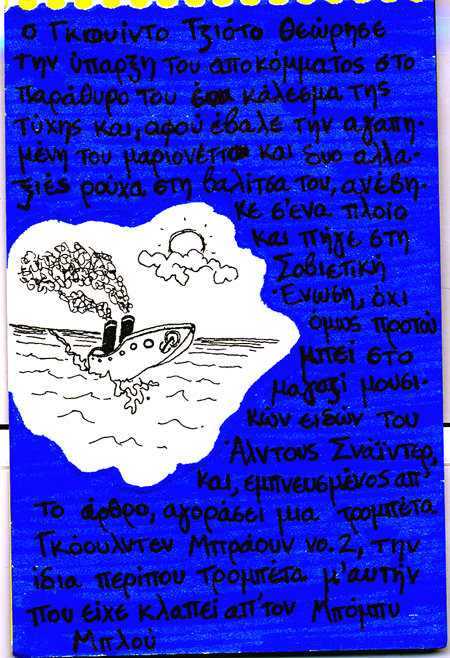 Ο Γκουίντο Τζιότο θεώρησε
την ύπαρξη του αποκόμματος στο
παράθυρο του κάλεσμα της
τύχης και, αφού έβαλε την αγαπη-
μένη του μαριονέττα και δυο αλλα-
ξιές ρούχα στη βαλίτσα του, ανέβη-
κε σ'ένα πλοίο
και πήγε στη
Σοβιετική
Ένωση, όχι
όμως προτού
μπεί στο
μαγαζί μουσι-
κών ειδών του
Άλντους Σνάϊντερ,
και, εμπνευσμένος απ'
το άρθρο, αγοράσει μια τρομπέτα
Γκόουλντεν Μπράουν νο.2, την
ίδια περίπου τρομπέτα μ'αυτήν
που είχε κλαπεί απ'τον Μπόμπυ
Μπλού